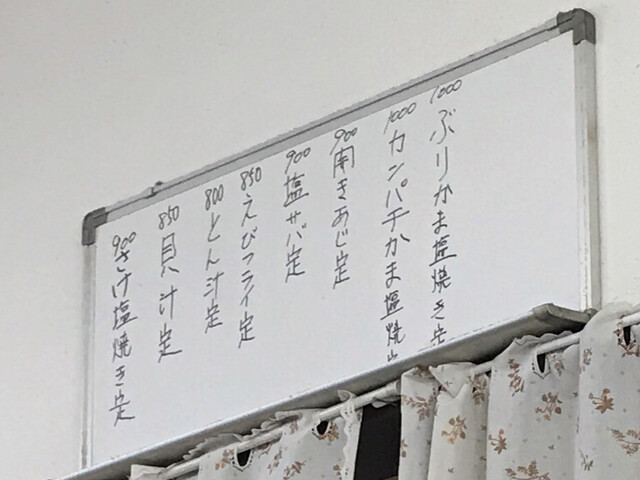 1000 ぶりかま塩焼き定
1000 カンパチかま塩焼
900 開きあじ定
900 塩サバ定
850 えびフライ定
800 とん汁定
850 貝汁定
900 さけ塩焼き定